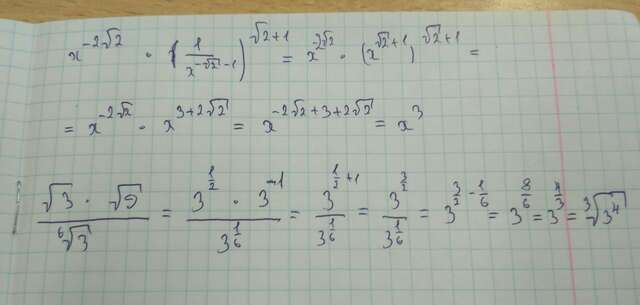 x^{-2√2} · (1/x^{-√2-1})^{√2+1} = x^{-2√2} · (x^{√2+1})^{√2+1} =
= x^{-2√2} · x^{3+2√2} = x^{-2√2+3+2√2} = x^3
(√3 · √9)/⁶√3 = (3^{1/2} · 3^1)/3^{1/6} = 3^{1/2+1}/3^{1/6} = 3^{3/2}/3^{1/6} = 3^{3/2-1/6} = 3^{8/6} = 3^{4/3} = ³√(3^4)